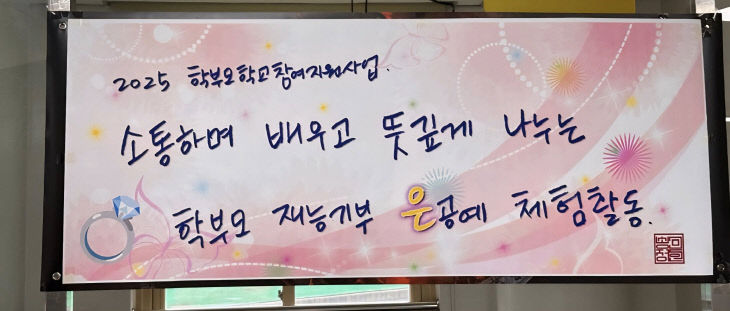 2025 학부모학교참여지원사업.
소통하며 배우고 뜻깊게 나누는
학부모 재능기부 은공예 체험활동.